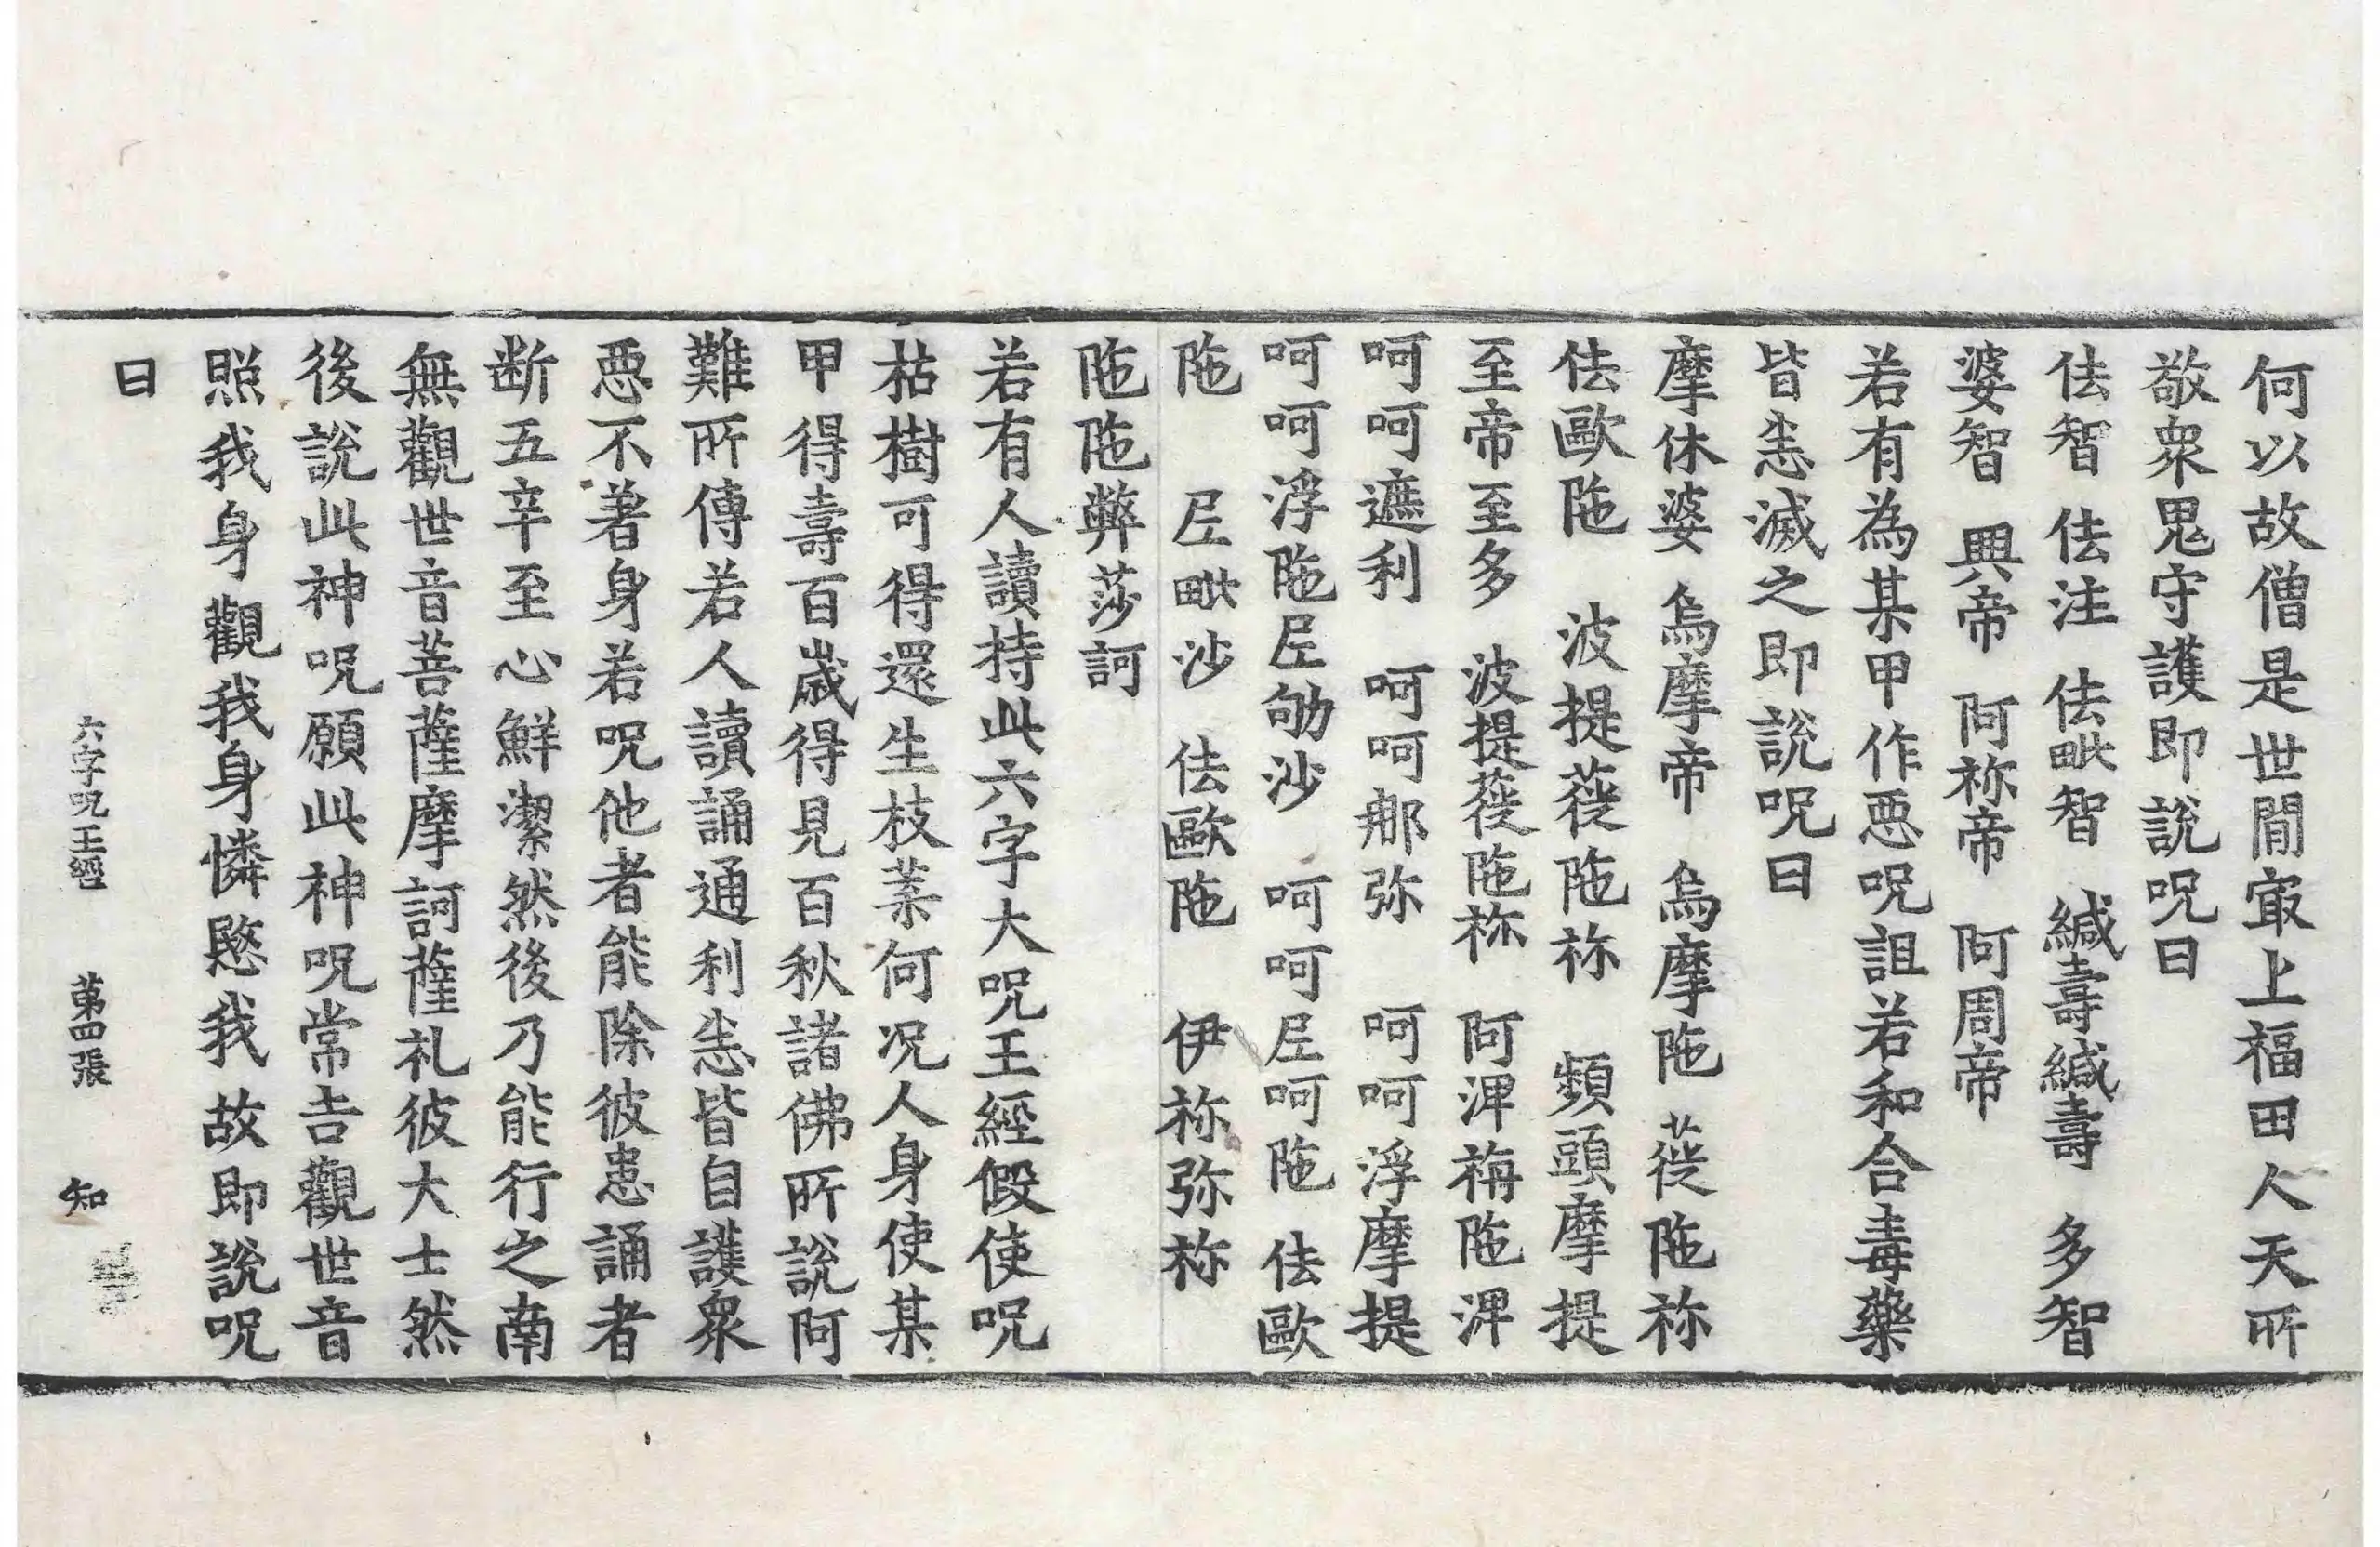 何以故僧是世間㝡上福田人天所
敬衆鬼守護即説呪曰
佉智 佉注 佉毗智 緘壽緘壽 多智
婆智 興帝 阿祢帝 阿周帝
若有為某甲作悪呪詛若和合毒藥
皆恙滅之即説呪曰
摩休婆 烏摩帝 烏摩陁 蓰陁祢
佉歐陁 波提蓰陁祢 頻頭摩提
至帝至多 波提蓰陁祢 阿渒祷陁渒
呵呵遮利 呵呵那弥 呵呵浮摩提
呵呵浮陁𡰱劬沙 呵呵𡰱呵陁 佉歐
陁 𡰱毗沙 佉歐陁 伊祢弥祢
陁陁弊莎訶
若有人讀持此六字大呪王經假使呪
枯樹可得還生枝葉何況人身使某
甲得壽百歲得見百秋諸佛所説阿
難所傳若人讀誦通利恙皆自護衆
悪不著身若呪他者能除彼患誦者
断五辛至心鮮潔然後乃能行之南
無觀世音菩薩摩訶薩礼彼大士然
後説此神呪願此神呪常吉觀世音
照我身觀我身憐愍我故即説呪
曰
六字呪王經 苐四張 知